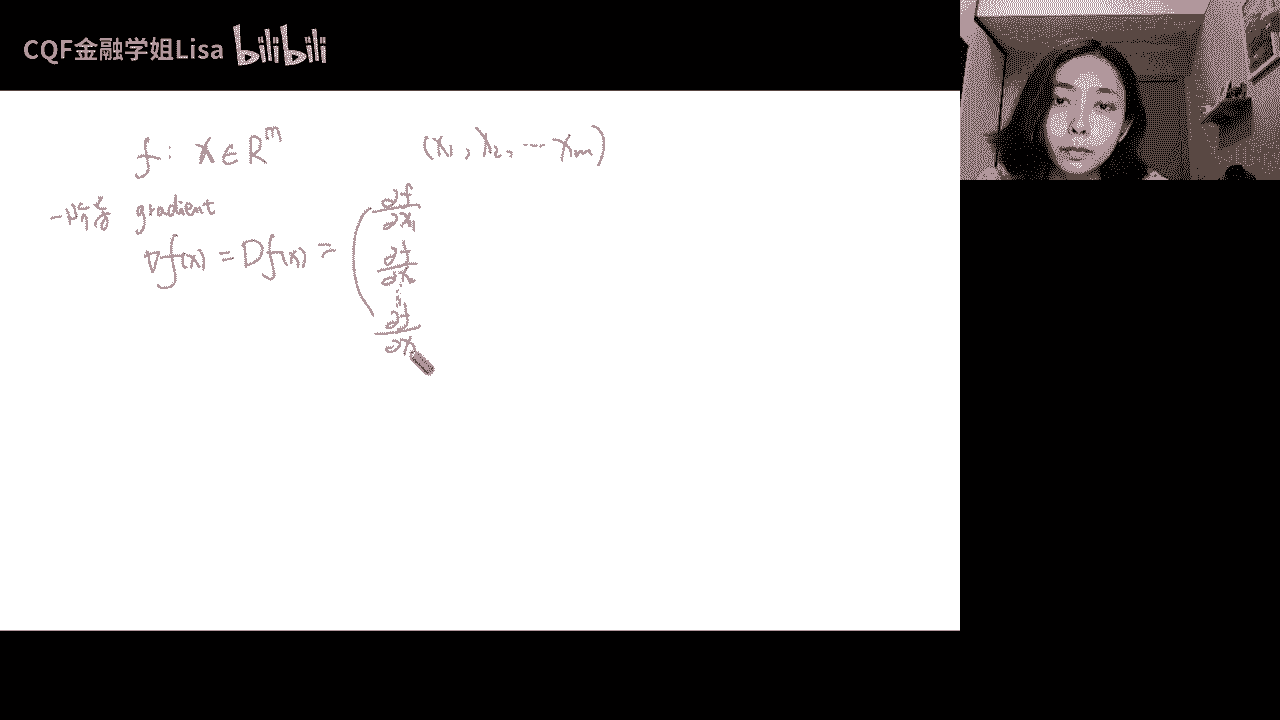 CQF金融学姐Lisa bilibili
f: x ∈ R^m (x₁, x₂, … xₘ)
一阶 gradient
∇f(x) = Df(x) = ( ∂f/∂x₁
∂f/∂x
⋮
∂f/∂x